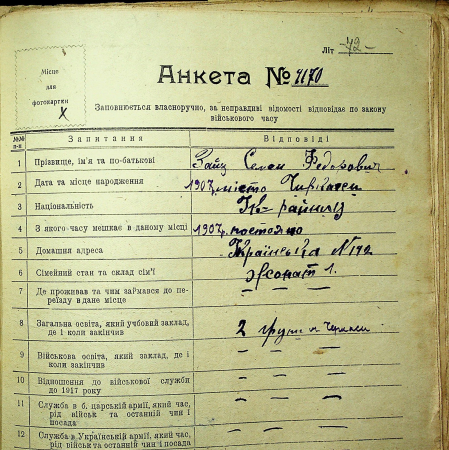 Літ -72-
Місце
для
фотокартки
Х
Анкета № 4170
Заповнюється власноручно, за неправдиві відомості відповідає по закову
військового часу
№№ п-п Запитання Відповіді
1 Прізвище, ім'я та по-батькові Заяц Семен Федорович
2 Дата та місце народження 1907, місто Черкасси
3 Національність
4 З якого часу мешкає в даному місці 1907, постояно
5 Домашня адреса Українська N 192
6 Сімейний стан та склад сім'ї Жонат 1.
7 Де проживав та чим займався до пе-
реїзду в дане місце — — —
8 Загальна освіта, який учбовий заклад,
де і коли закінчив 2 групи
9 Військова освіта, який заклад, де і
коли закінчив — — —
10 Відношення до військової служби
до 1917 року — — —
11 Служба в б. царській армії, який час,
рід військ та останній чин і
посада — — —
12 Служба в Українській армії, який час,
рід військ та останній чин і посада — —